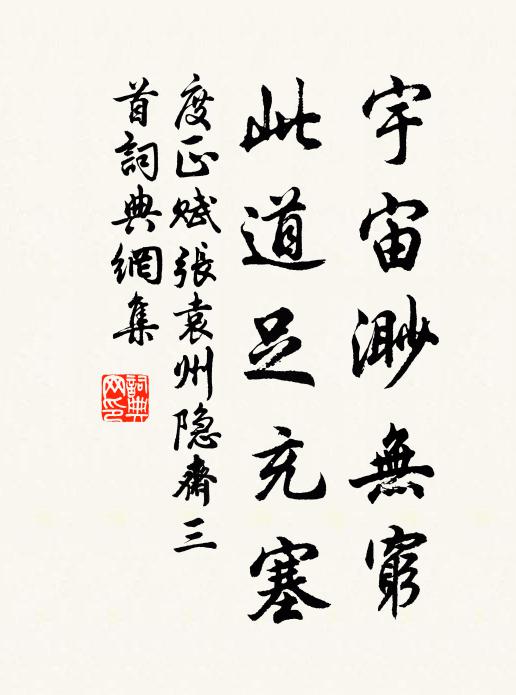 宇宙渺無窮
此道足充塞
度正賦張袁州隐齋三
首詞典網集
詞典
网印